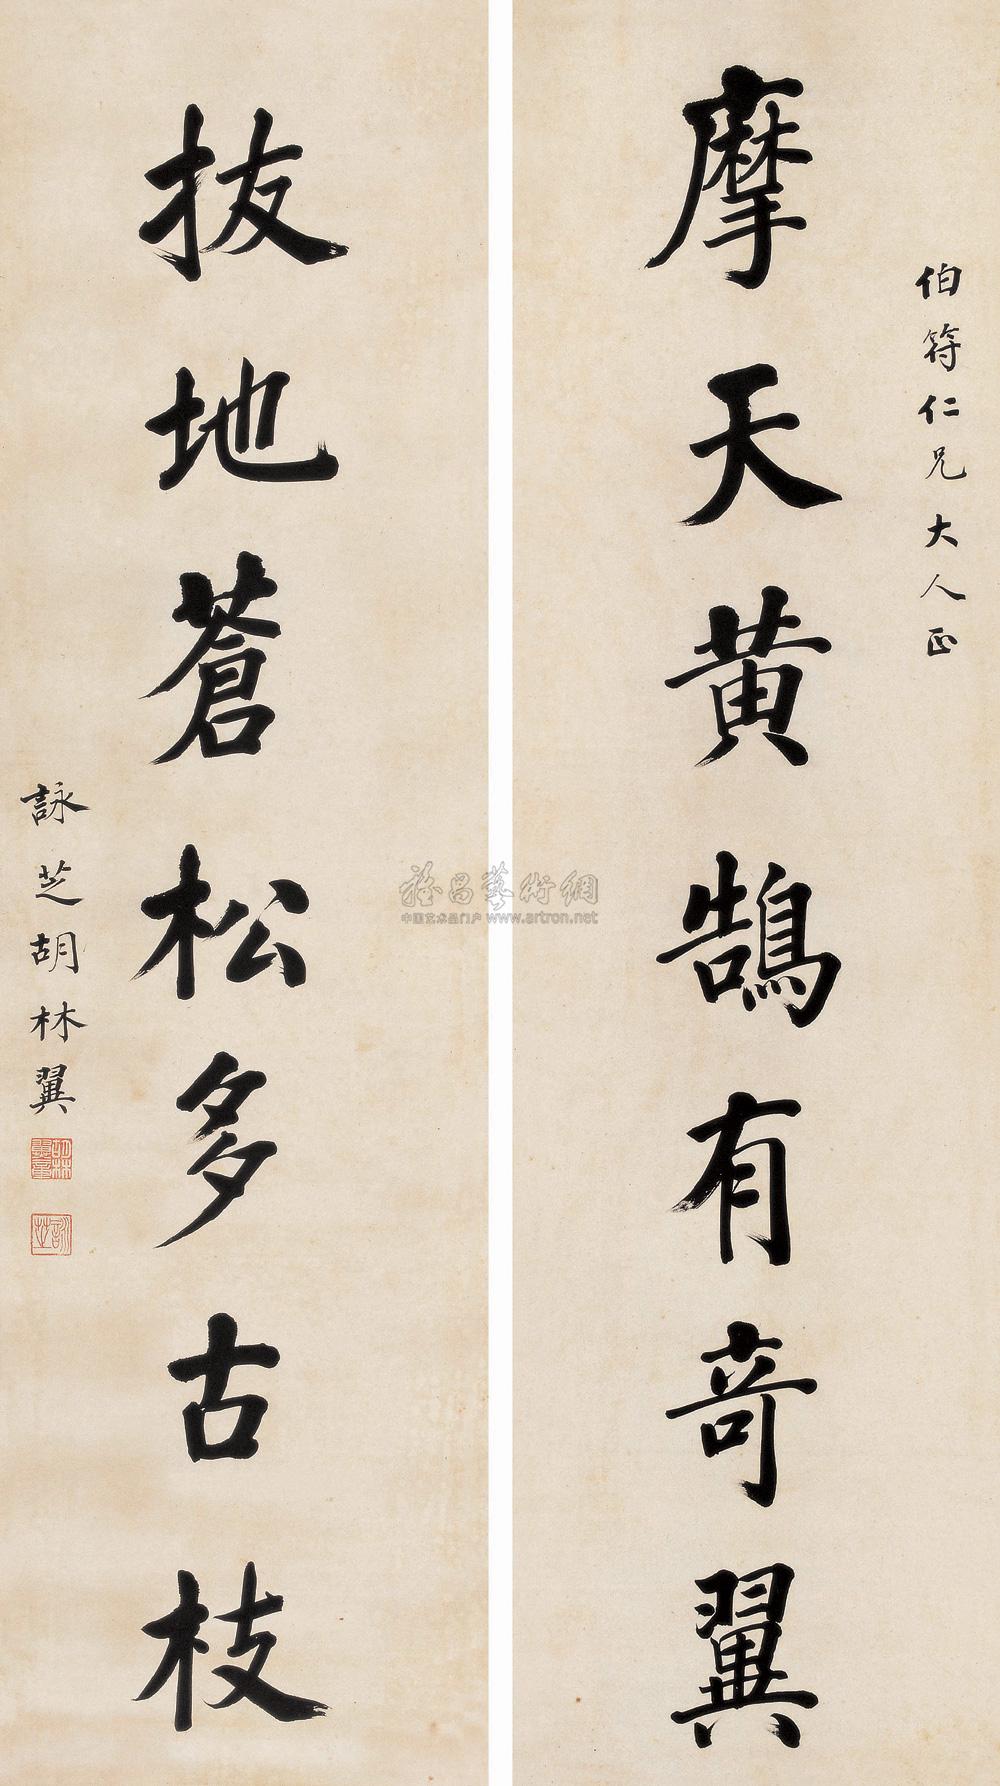 伯符仁兄大人正
摩天黄鵠有奇翼
拔地蒼松多古枝
詠芝胡林翼
胡林翼章
詠芝
中国艺术品门户 www.artron.net